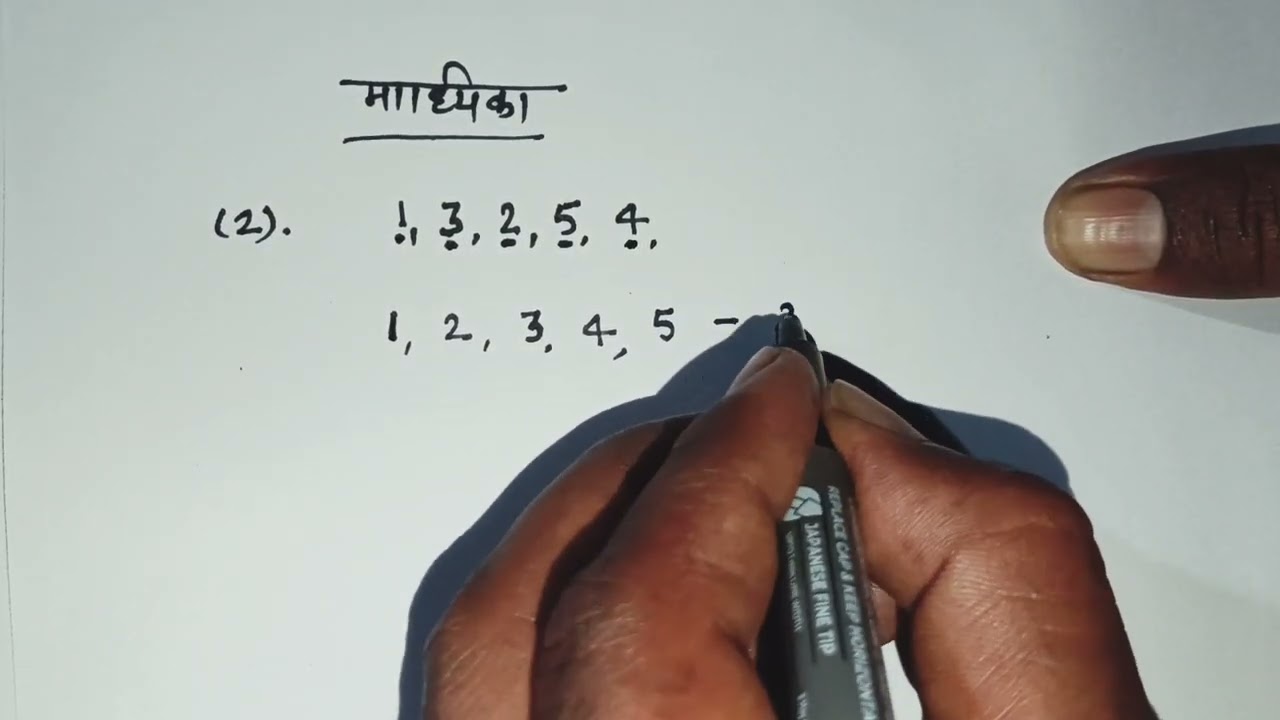 माध्यिका
(2). 1, 3, 2, 5, 4,
1, 2, 3, 4, 5 -
REPLACE CAP & KEEP HORIZONTA
JAPANESE FINE TIP